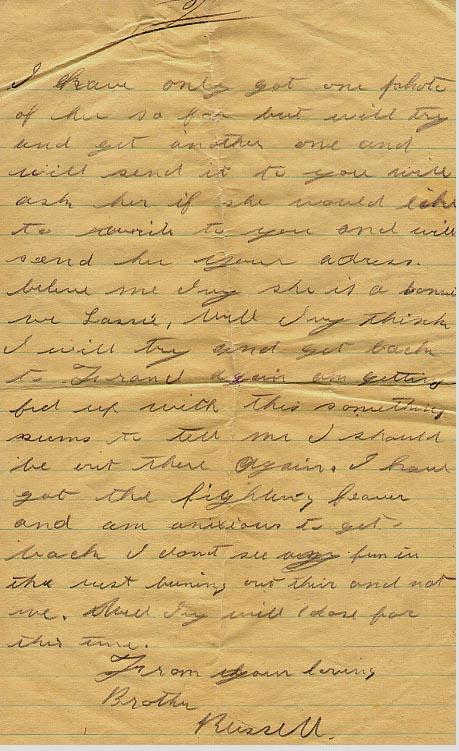 2
I have only got one photo
of her so far but will try
and get another one and
will send it to you will
ask her if she would like
to write to you and will
send her your adress.
beleve me Ivy she is a bonnie
we Lassie, Well Ivy think
I will try and get back
to France again am getting
fed up with this something
seems to tell me I should
be out there again. I have
got the fighting feaver
and am anixious to get
back I dont see any fun in
the rest being out thir and not
me. Well Ivy will close for
this time.
From your loving
Brother
Russell.